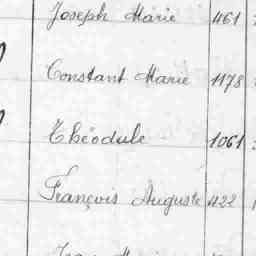 Joseph Marie 461
Constant Marie 1178
Théodule 1061
François Auguste 422